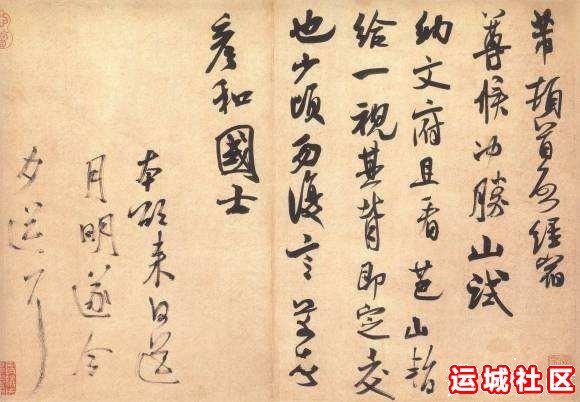 芾頓首啓經宿
尊候冲勝山試
納文府且看芭山暫
給一視其背即定交
也少頃勿復言芾頓首
彦和國士
本欲來日送
月明遂今
夕送耳
运城社区